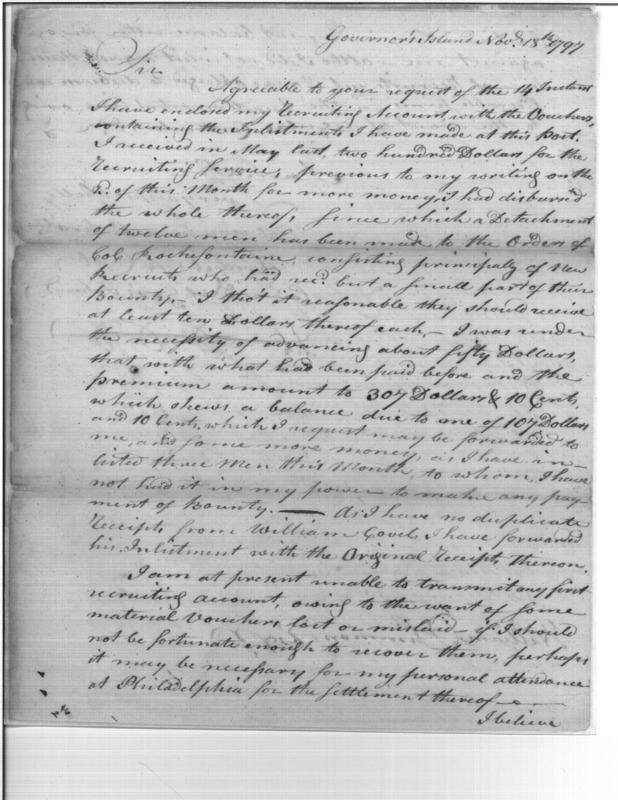 Governor's Island Novr. 18th 1797
Sir
Agreable to your request of the 14 Instant
I have enclosed my Recruiting Account, with the Vouchers,
containing the Inlistments I have made at this Post.
I received in May last, two hundred Dollars for the
Recruiting Service, previous to my writing on the
2d. of this Month for more money, I had disbursed
the whole thereof, since which a Detachment
of twelve men has been made to the Orders of
Col Rochefontaine, consisting principaly of New
Recruits who had recd. but a small part of their
Bounty, I tho't it reasonable they should receive
at least ten Dollars thereof each, — I was under
the necessity of advancing about fifty Dollars,
that with what had been paid before and the
premium amount to 307 Dollars & 10 Cents,
which shews a balance due to me of 107 Dollars
and 10 Cents, which I request may be forwarded to
me, and some more money, as I have in-
listed three Men this Month, to whom, I have
not had it in my power to make any pay-
ment of Bounty. — As I have no duplicate
Receipts from William Covel, I have forwarded
his Inlistment with the Original Receipts thereon,
I am at present unable to transmit my first
recruiting account, owing to the want of some
material Vouchers lost or mislaid — if I should
not be fortunate enough to recover them, perhaps
it may be necessary for my personal attendance
at Philadelphia for the settlement thereof —
I believe